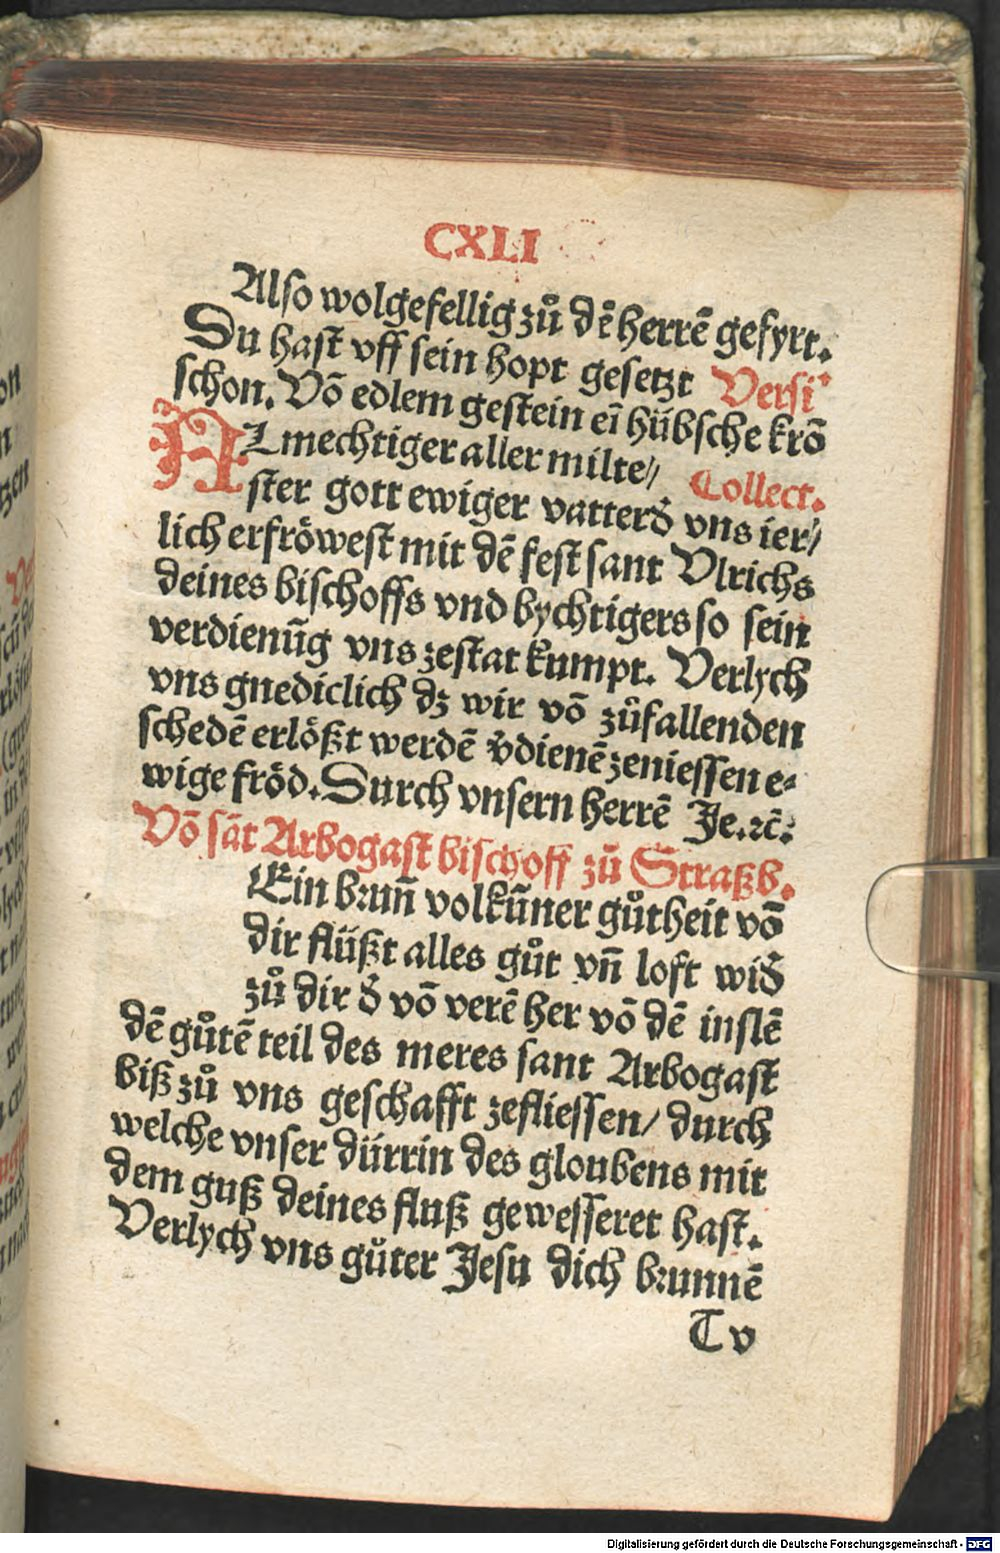 CXLI
Also wolgefellig zů dē herrē gefyrt.
Du hast vff sein hopt gesetzt Versi'
schon. Võ edlem gestein eī hübsche krõ
ALmechtiger aller milte// Collect.
ster gott ewiger vatter đ vns ier//
lich erfröwest mit dē fest sant Vlrichs
deines bischoffs vnd bychtigers so sein
verdienūg vns zestat kumpt. Verlych
vns gnediclich dz wir võ zůfallenden
schedē erlößt werdē v̄dienē zeniessen e⸗
wige fröd. Durch vnsern herrē Je. ꝛc̄.
Võ sāt Arbogast bischoff zů Straßb.
Ein brun̄ volkūner gůtheit võ
dir flüßt alles gůt vn̄ loft wiđ
zů dir đ võ verē her võ dē inslē
dē gůtē teil des meres sant Arbogast
biß zů vns geschafft zefliessen/ durch
welche vnser dürrin des gloubens mit
dem guß deines fluß gewesseret hast.
Verlych vns gůter Jesu dich brunnē
T v
Digitalisierung gefördert durch die Deutsche Forschungsgemeinschaft - DFG